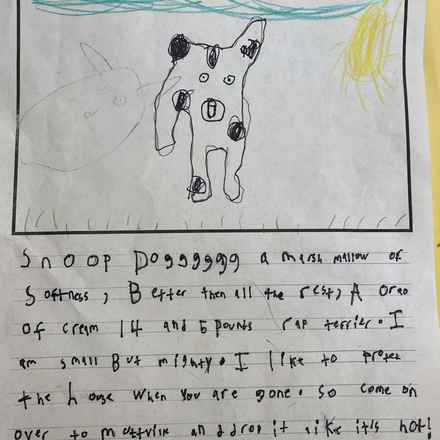 Snoop Doggggggg a marsh mallow of
Softness, Better then all the rest, A oreo
of cream 14 and 5 pounds rap terrier. I
am small But mighty. I like to protet
the house when you are gone. So come on
over to and drop it like it's hot!